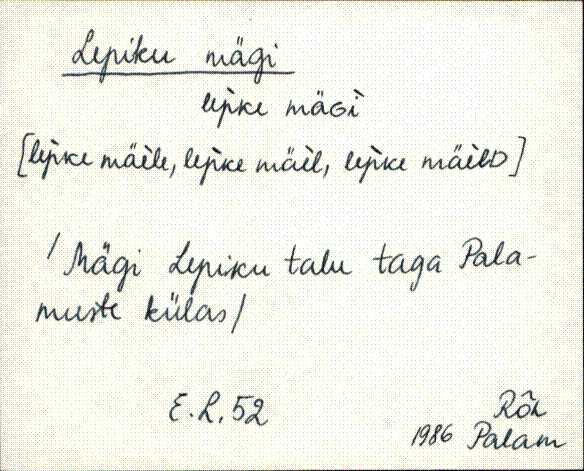 Lepiku mägi
lep̀ke mäGì
[lep̀ke mäèle, lep̀ke mäèl, lep̀ke mäèlD]
/Mägi Lepiku talu taga Pala-
muste külas/
E.L.52
Rõh
1986 Palam